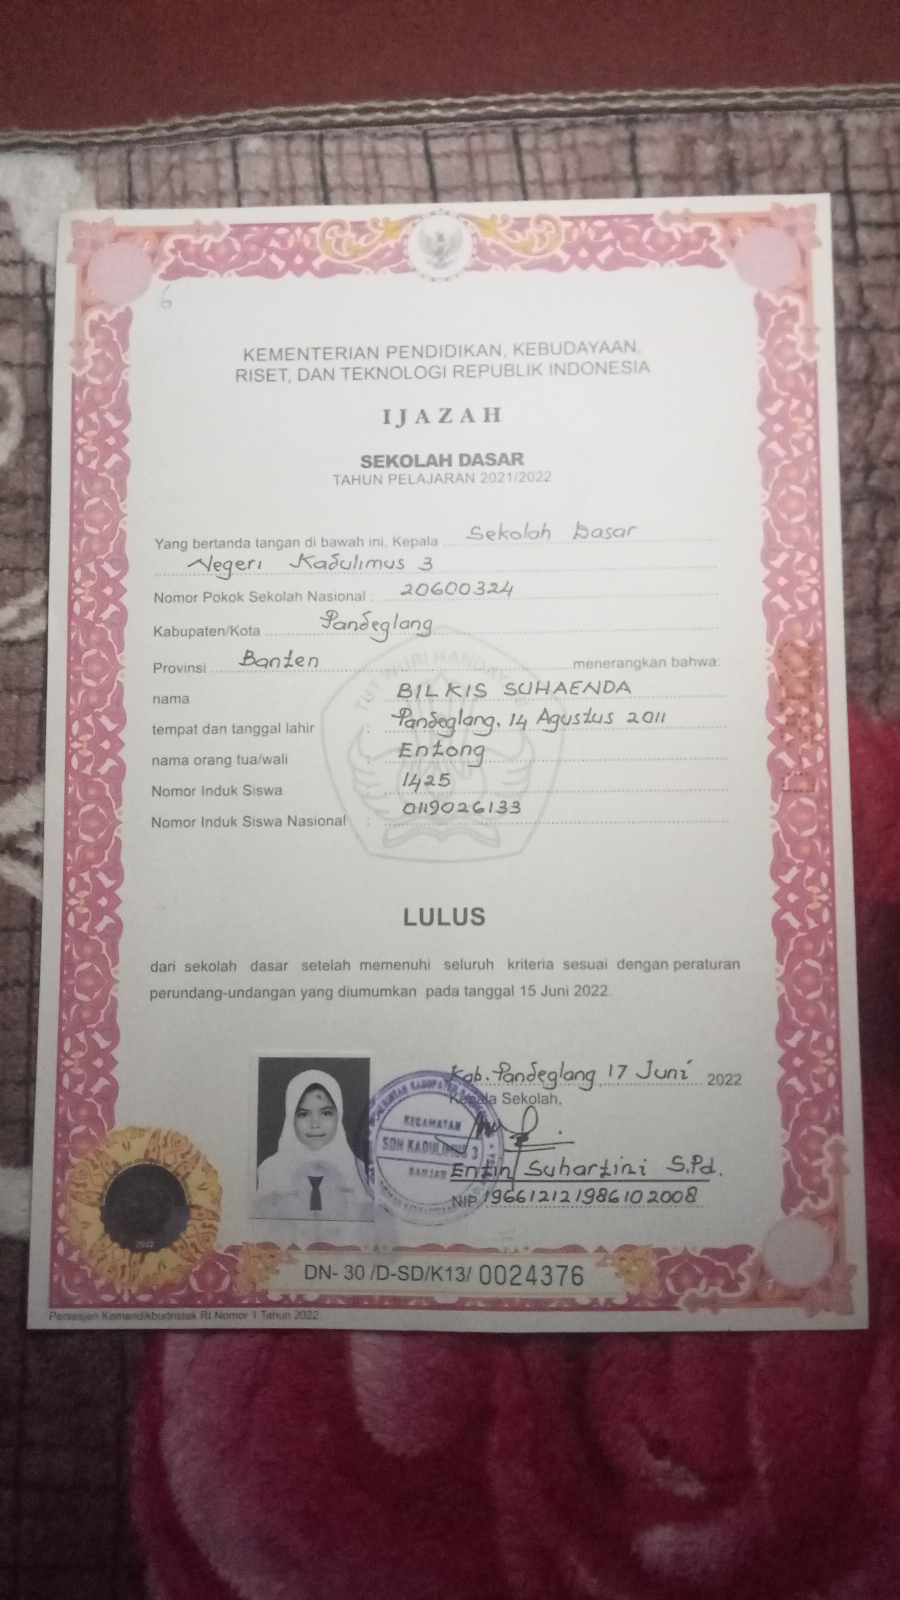 6
KEMENTERIAN PENDIDIKAN, KEBUDAYAAN,
RISET, DAN TEKNOLOGI REPUBLIK INDONESIA
IJAZAH
SEKOLAH DASAR
TAHUN PELAJARAN 2021/2022
Yang bertanda tangan di bawah ini, Kepala Sekolah Dasar
Negeri Kadulimus 3
Nomor Pokok Sekolah Nasional : 20600324
Kabupaten/Kota Pandeglang
Provinsi Banten menerangkan bahwa:
nama : BILKIS SUHAENDA
tempat dan tanggal lahir : Pandeglang, 14 Agustus 2011
nama orang tua/wali : Entong
Nomor Induk Siswa : 1425
Nomor Induk Siswa Nasional : 0119026133
TUT WURI HANDAYANI
LULUS
dari sekolah dasar setelah memenuhi seluruh kriteria sesuai dengan peraturan
perundang-undangan yang diumumkan pada tanggal 15 Juni 2022.
Kab. Pandeglang, 17 Juni 2022
Kepala Sekolah,
KECAMATAN
SDN KADULIMUS 3
BANJAR
Entin Suhartini S.Pd.
NIP 196612121986102008
2022
DN- 30 /D-SD/K13/ 0024376
Persesjen Kemendikbudristek RI Nomor 1 Tahun 2022